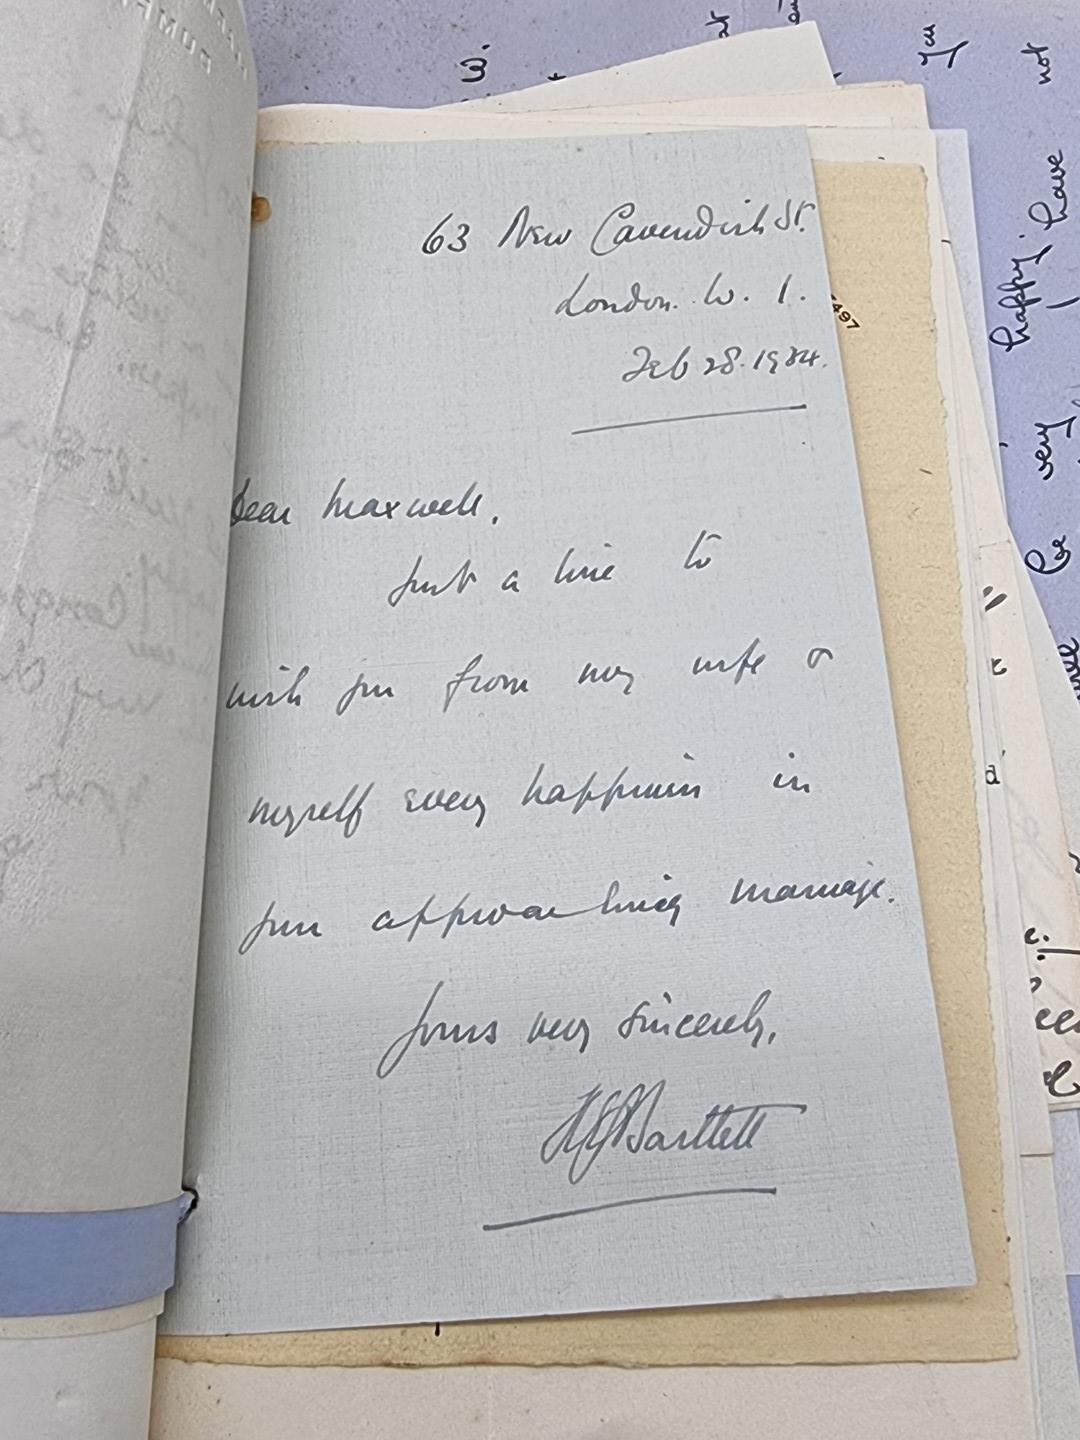 63 New Cavendish St.
London. W. 1.
Feb 28. 1934.
Dear Maxwell,
Just a line to
wish you from my wife &
myself every happiness in
your approaching marriage.
Yours very sincerely,
Bartlett
W.
at
you
not
have
happy,
I
very
be
497